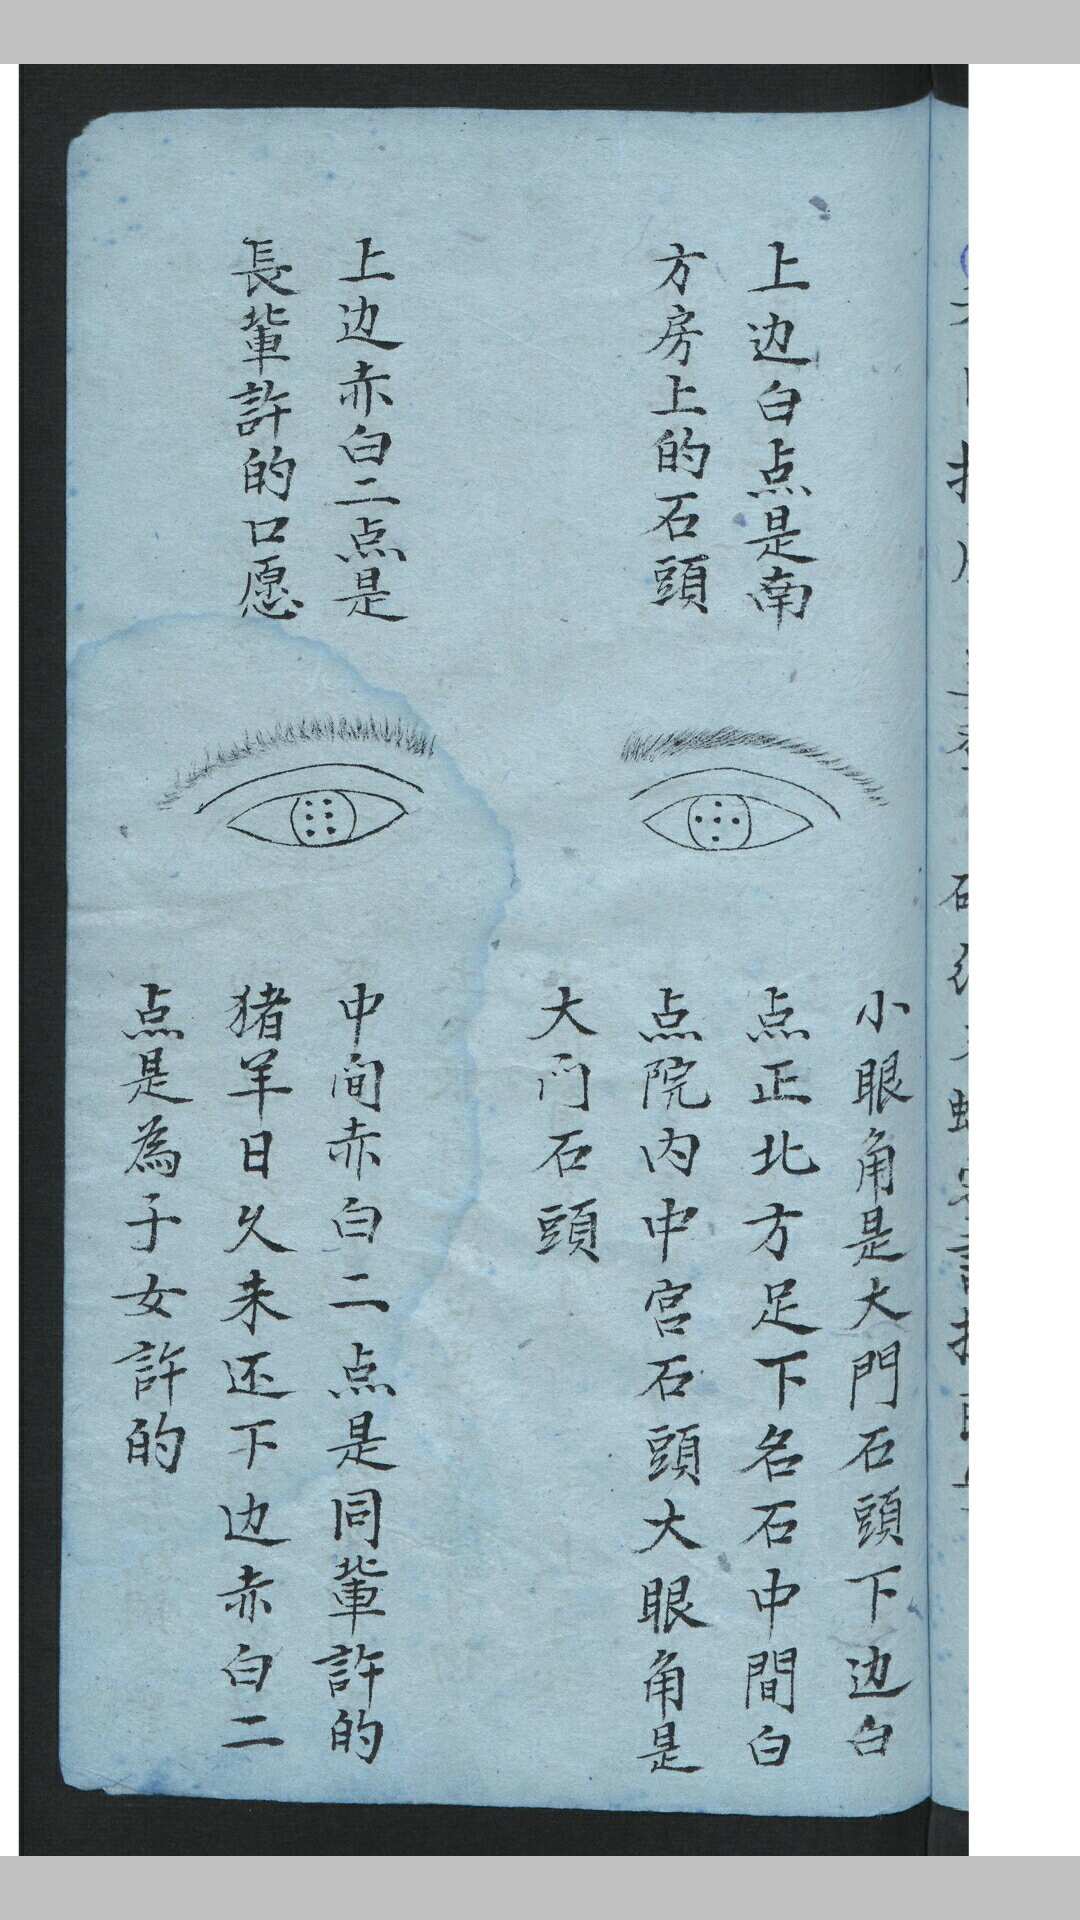 上边白点是南
方房上的石頭
小眼角是大門石頭下边白
点正北方足下名石中間白
点院内中宫石頭大眼角是
大门石頭
上边赤白二点是
長輩許的口愿
中间赤白二点是同輩許的
猪羊日久未还下边赤白二
点是為子女許的